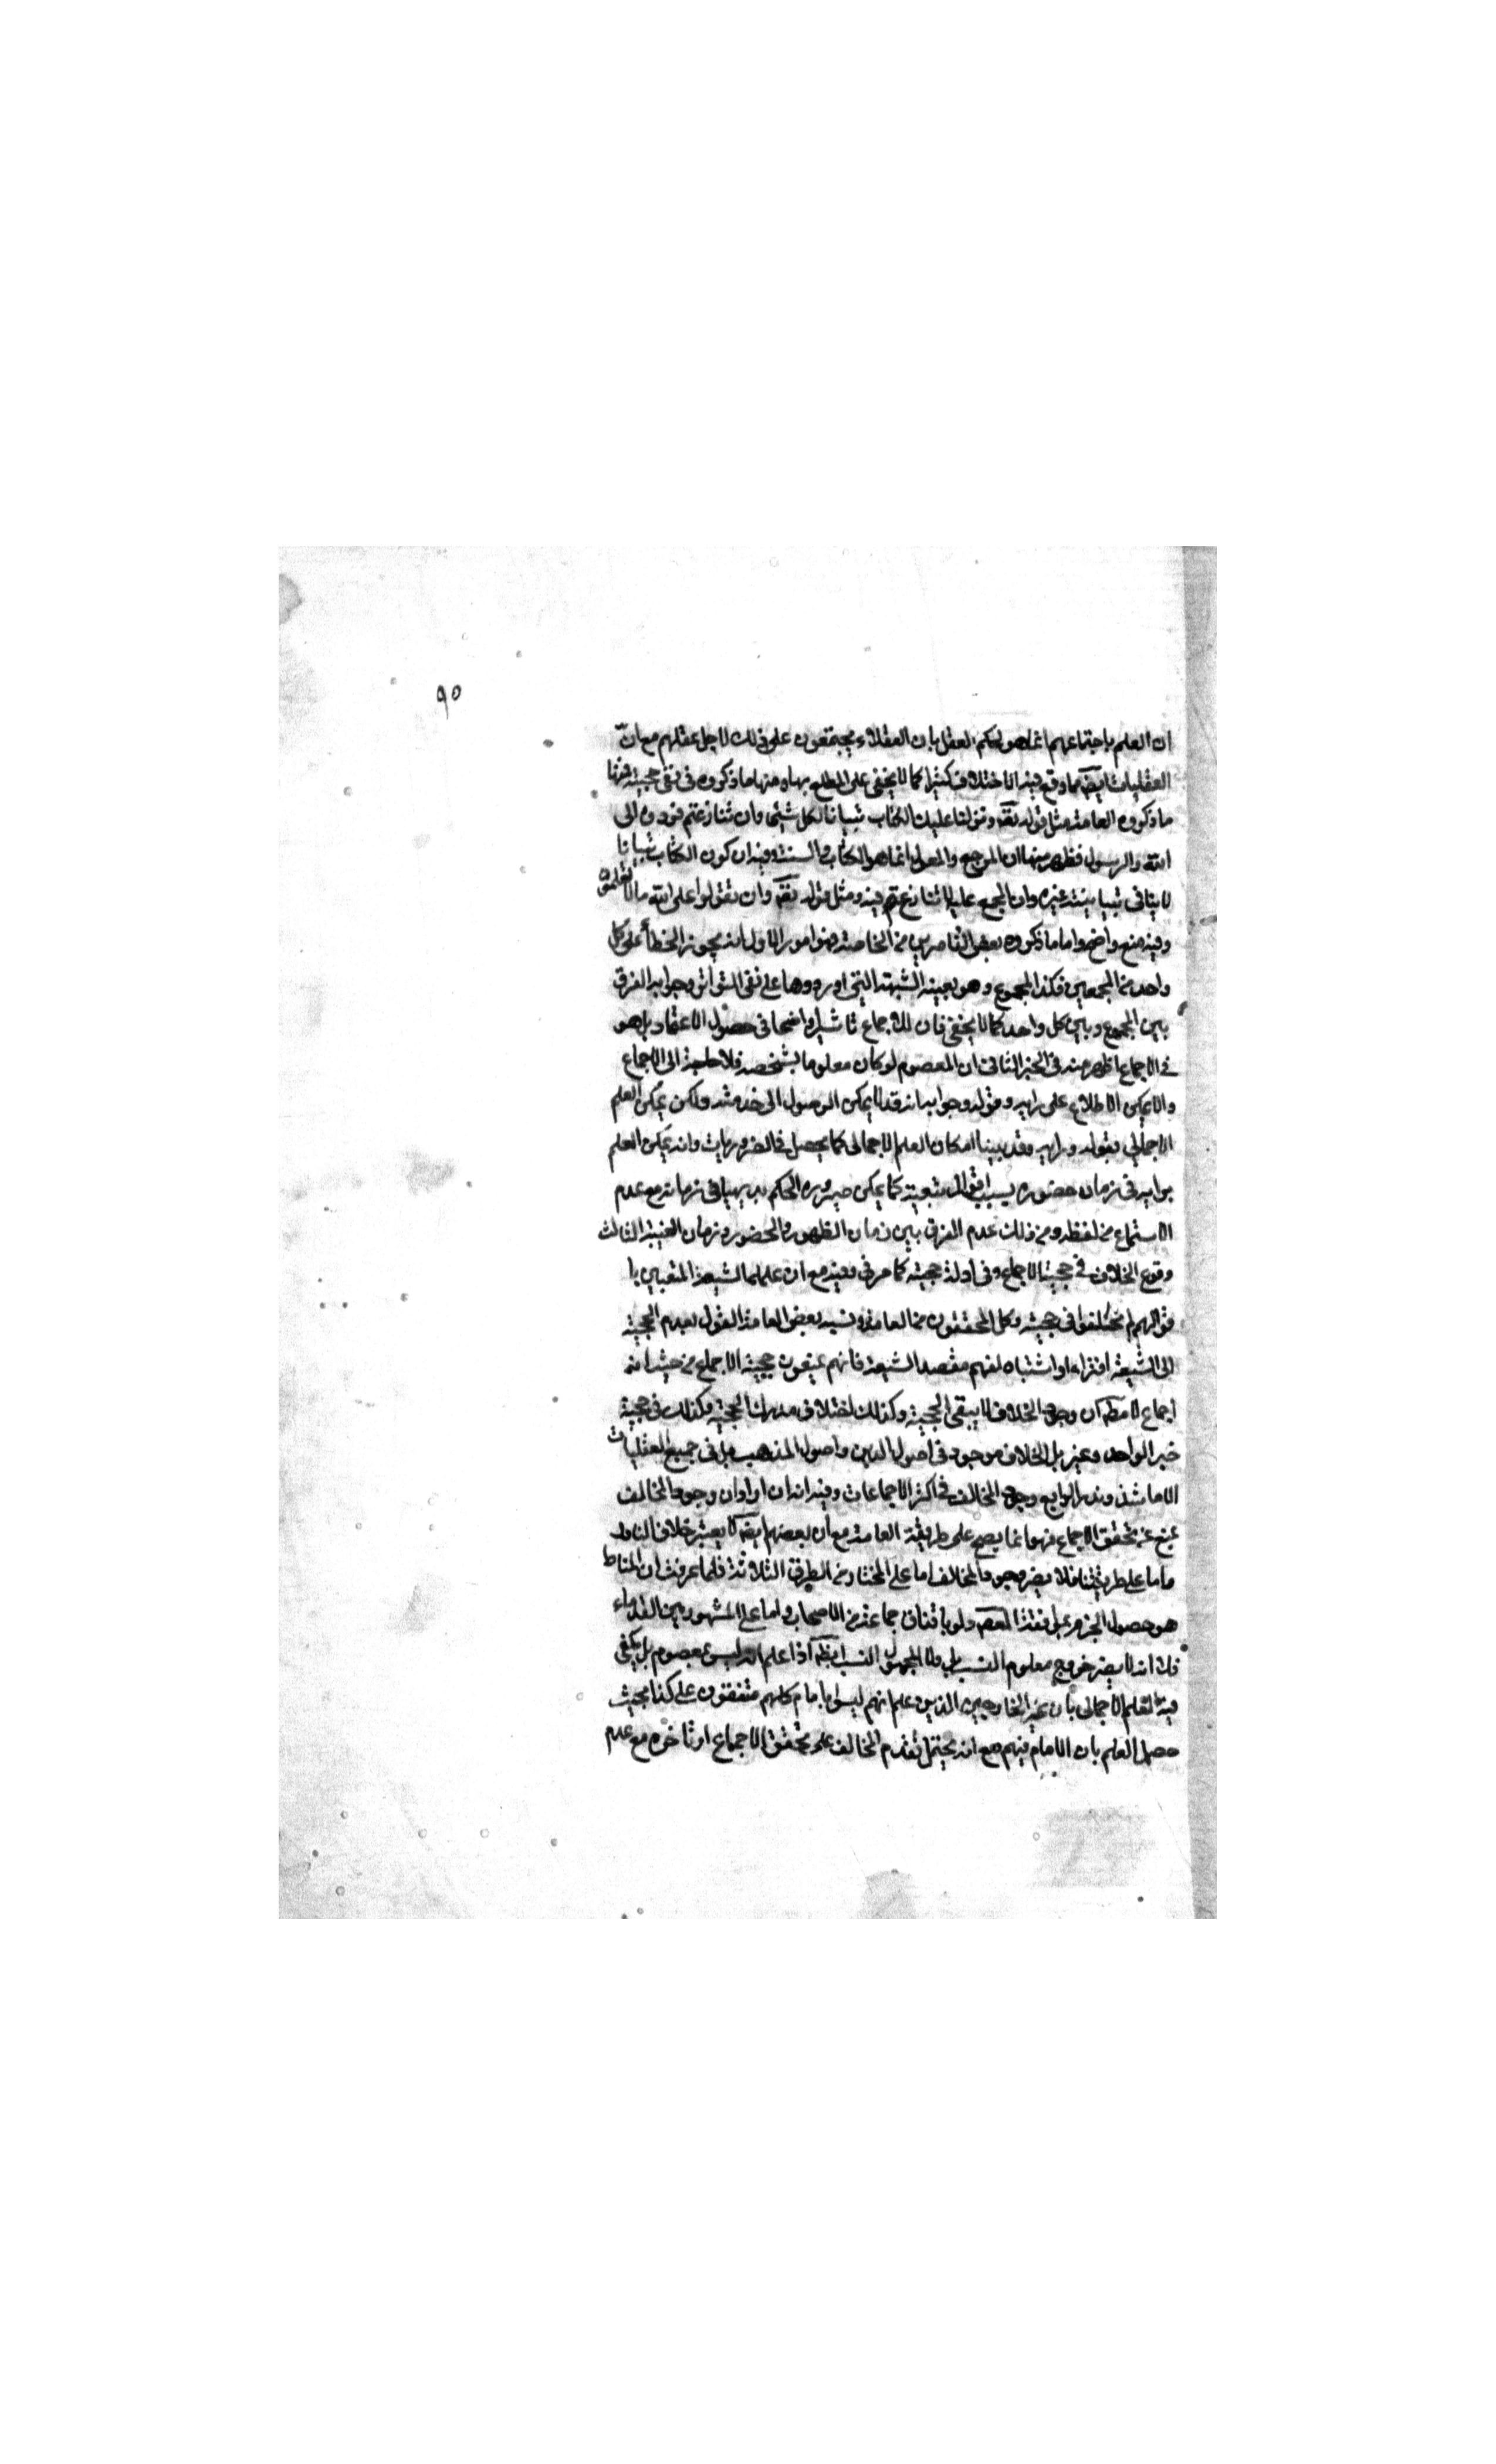 ٩٥
ان العلم باجتماعهم انما هو لحكم العقل بان العقلاء يجتمعون على ذلك لاجل عقلهم مع انّ
العقليات ايضً مما وقع فيه الاختلاف كثيرا كما لا يخفى على المطلع بها ومنها ما ذكروه فى نفى حجيته فمنها
ما ذكروه العامة مثل قوله تعٓ ونزلنا عليك الكتاب تبيانا لكل شئ وان تنازعتم فردوه الى
الله والرسول فظهر منها ان المرجع والمعول انما هو الكتاب والسنة وفيه ان كون الكتاب تبيانا
لا ينافى تبيانية غيره وان المجمع عليه لا تنازع فيه ومثل قوله تعٓ وان تقولوا على الله ما لا تعلمون
وفيه منع واضح واما ما ذكروه بعض القاصرين من الخاصة فهو امور الاول انه يجوز الخطأ على كل
واحد من المجمعين فكذا المجموع وهو بعينه الشبهة التى اوردوها على نفى التواتر وجوابه الفرق
بين المجموع وبين كل واحد كما لا يخفى فان للاجماع تاثيرا واضحا فى حصول الاعتماد بل هو
فى الاجماع اظهر منه فى الخبر الثانى ان المعصوم لو كان معلوما بشخصه فلا حاجة الى الاجماع
والا يمكن الاطلاع على رايه وقوله وجوابه انه قد لا يمكن الوصول الى خدمته ولكن يمكن العلم
الاجمالى بقوله ورايه وقد بينا امكان العلم الاجمالى كما يحصل فى الضروريات وانه يمكن العلم
برايه فى زمان حضوره بسبب اقوال تبعيته كما يمكن صيرورة الحكم بديهيا فى زمانه مع عدم
الاستماع من لفظه ومن ذلك عدم الفرق بين زمان الظهور والحضور وزمان الغيبة الثالث
وقوع الخلاف فى حجية الاجماع وفى ادلة حجيته كما مر وفيه مع ان علماء الشيعة المعتنين با
قوالهم لم يختلفوا فى حجيته وكل المحققون من العامة ونسبه بعض العامة القول بعدم الحجية
الى الشيعة افتراء او اشتباه لفهم مقصد الشيعة فانهم يمنعون حجية الاجماع من حيث انه
اجماع لا مطٓ ان وجود الخلاف لا يبقى الحجية وكذلك اختلاف مدرك الحجية وكذلك فى حجية
خبر الواحد وغيره بل الخلاف موجود فى اصول الدين واصول المذهب بل فى جميع العقليات
الا ما شذ وندر الرابع وجود المخالف فى اكثر الاجماعات وفيه انه ان اراد ان وجود المخالف
يمنع عن تحقق الاجماع فهو انما يصح على طريقة العامة مع ان بعضهم ايضً لا يعتبر خلاف النادر
واما على طريقتنا فلا يضر وجود المخالف اما على المختار من الطرق الثلاثة فلما عرفت ان المناط
هو حصول الجزم بموافقة المعصٓ ولو باتفاق جماعة من الاصحاب واما على المشهور بين القدماء
فلانه لا يضر خروج معلوم النسب بل ولا المجهول النسب ايضً اذا علم انه ليس بمعصوم بل يكفى
فيه العلم الاجمالى بان غير الخارجين الذين علم انهم ليسوا بامام كلهم متفقون على كذا بحيث
حصل العلم بان الامام فيهم مع انه يحتمل تقدم المخالف على تحقق الاجماع او تاخره مع عدم